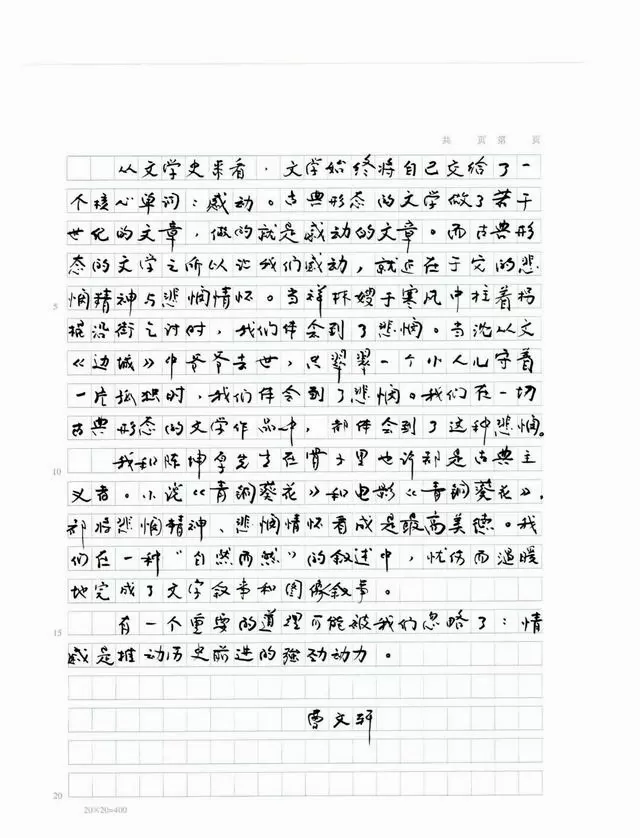 共 页 第 页
从文学史来看，文学始终将自己交给了一
个核心单词：感动。古典形态的文学做了若干
世纪的文章，做的就是感动的文章。而古典形
态的文学之所以让我们感动，就近在于它的悲
5 悯精神与悲悯情怀。当祥林嫂于寒风中拄着拐
棍沿街乞讨时，我们体会到了悲悯。当沈从文
《边城》中爷爷去世，只翠翠一个小人儿守着
一片孤独时，我们体会到了悲悯。我们在一切
古典形态的文学作品中，都体会到了这种悲悯。
10 我和陈坤厚先生在骨子里也许都是古典主
义者。小说《青铜葵花》和电影《青铜葵花》，
都将悲悯精神、悲悯情怀看成是最高美德。我
们在一种“自然而然”的叙述中，忧伤而温暖
地完成了文字叙事和图像叙事。
15 有一个重要的道理可能被我们忽略了：情
感是推动历史前进的强劲动力。
曹文轩
20
20×20=400